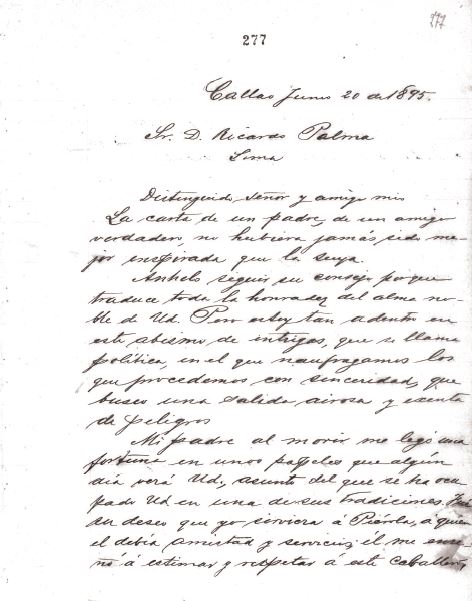 277
277
Callao Junio 20 de 1895.
Sr. D. Ricardo Palma
Lima
Distinguido señor y amigo mio
La carta de un padre, de un amigo
verdadero, no hubiera jamás sido me-
jor inspirada que la suya.
Anhelo seguir su consejo porque
traduce toda la honradez del alma no-
ble de Ud. Pero estoy tan adentro en
este abismo de intrigas, que se llama
política, en el que naufragamos los
que procedemos con sinceridad, que
busco una salida airosa y exenta
de peligros
Mi padre al morir me legó una
fortuna en unos papeles que algún
dia verá Ud, asunto del que se ha ocu
pado Ud en una de sus tradiciones. Fué
su deseo que yo sirviera á Piérola, á quien
el debía amistad y servicios; él me ense
ñó á estimar y respetar á este caballero,